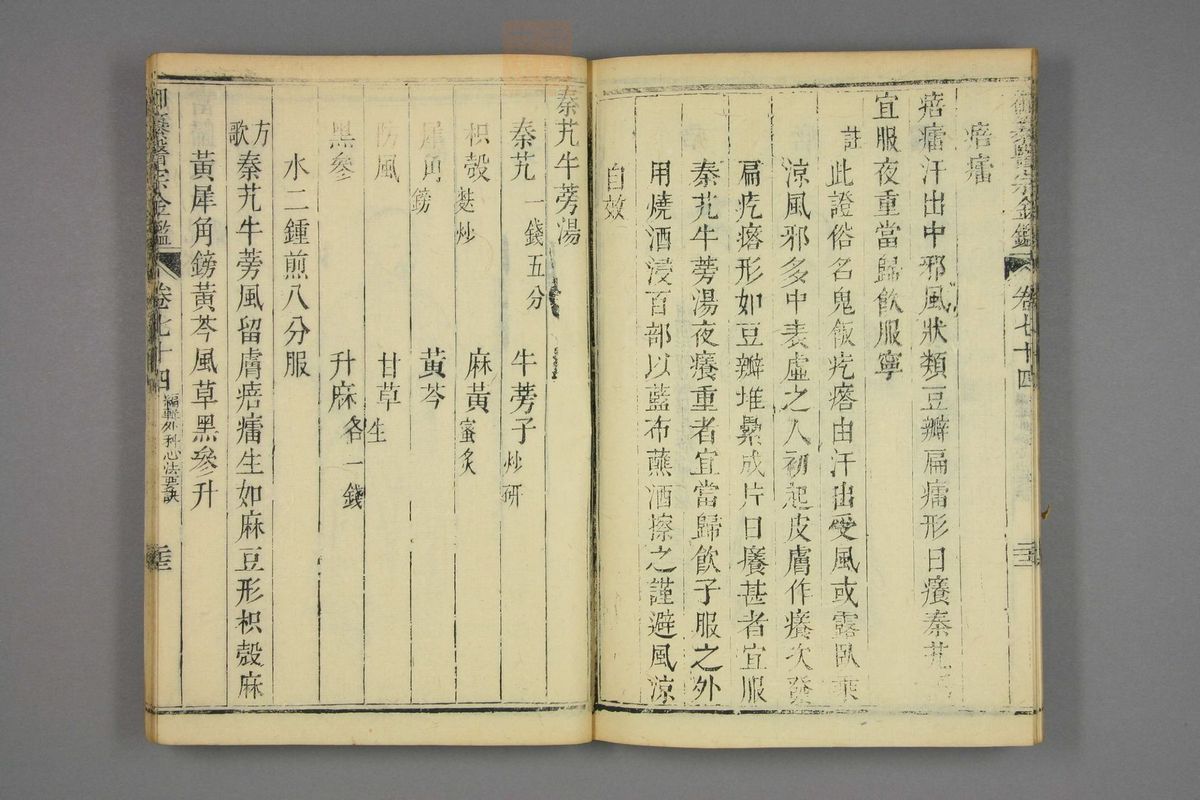 痦㿔
痦㿔汗出中邪風狀類豆瓣扁瘤形日癢秦艽
宜服夜重當歸飲服寧
註此證俗名鬼飯疙瘩由汗出受風或露臥乘
涼風邪多中表虛之人初起皮膚作癢次發
扁疙瘩形如豆瓣堆纍成片日癢甚者宜服
秦艽牛蒡湯夜癢重者宜當歸飲子服之外
用燒酒浸百部以藍布蘸酒擦之謹避風涼
自效
秦艽牛蒡湯
秦艽一錢五分 牛蒡子炒研
枳殼麩炒 麻黃蜜炙
犀角鎊 黃芩
防風 甘草生
黑參 升麻各一錢
水二鍾煎八分服
方歌秦艽牛蒡風留膚痦㿔生如麻豆形枳殼麻
黃犀角鎊黃芩風草黑參升
御纂醫宗金鑑 卷七十四 編輯外科心法要訣 二十三